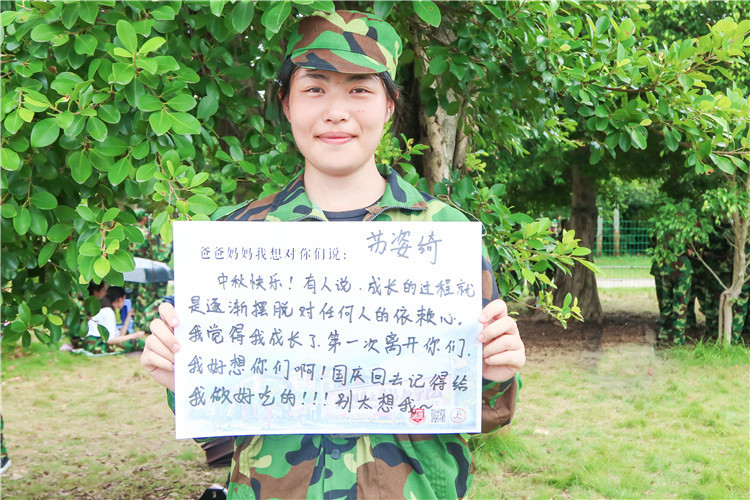 爸爸妈妈我想对你们说: 苏姿绮
中秋快乐！有人说，成长的过程就
是逐渐摆脱对任何人的依赖心。
我觉得我成长了，第一次离开你们，
我好想你们啊！国庆回去记得给
我做好吃的！！！别太想我~